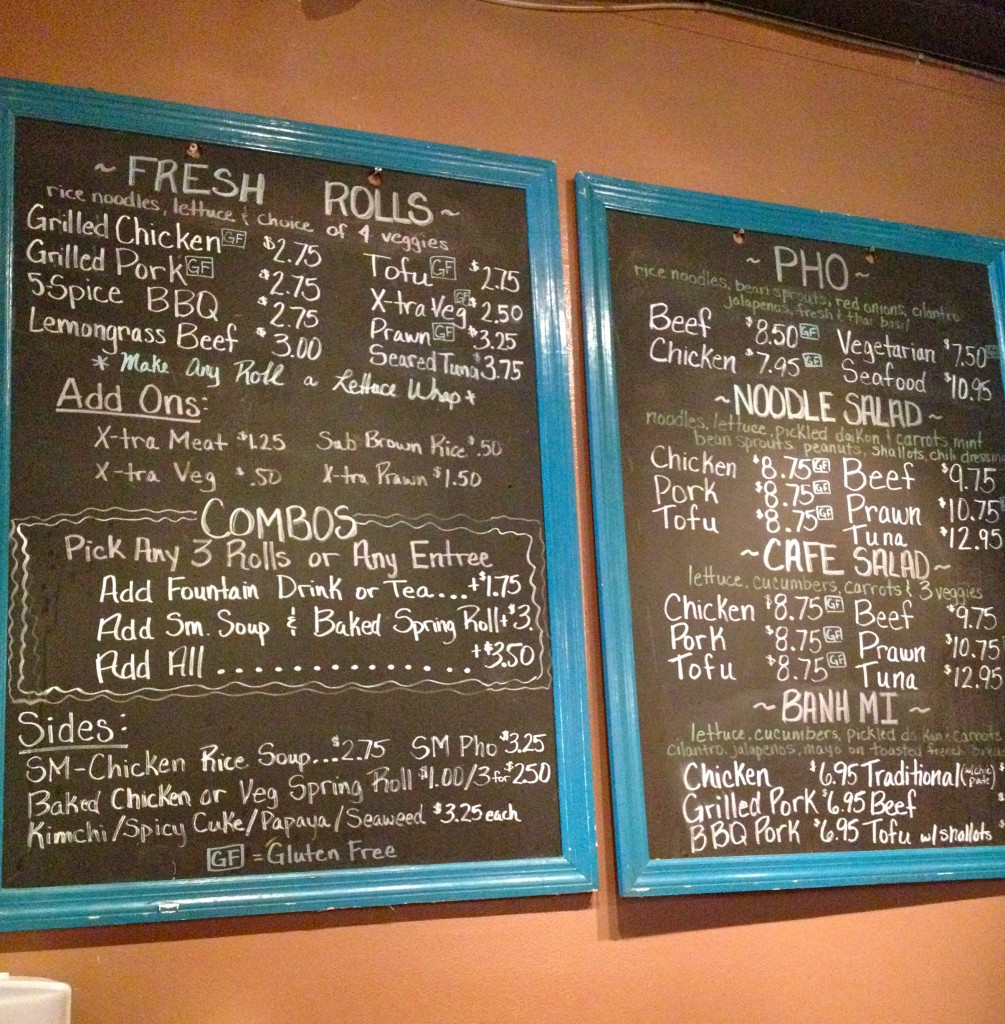 ~ FRESH ROLLS ~
rice noodles, lettuce & choice of 4 veggies
Grilled Chicken GF $2.75
Grilled Pork GF $2.75
5-Spice BBQ $2.75
Lemongrass Beef $3.00
Tofu GF $2.75
X-tra Veg GF $2.50
Prawn GF $3.25
Seared Tuna $3.75
* Make Any Roll a Lettuce Wrap *
Add Ons:
X-tra Meat $1.25 Sub Brown Rice $.50
X-tra Veg $.50 X-tra Prawn $1.50
COMBOS
Pick Any 3 Rolls or Any Entree
Add Fountain Drink or Tea...+$1.75
Add Sm. Soup & Baked Spring Roll+$3.
Add All ..............+$3.50
Sides:
SM-Chicken Rice Soup...$2.75 SM Pho $3.25
Baked Chicken or Veg Spring Roll $1.00/3 for $250
Kimchi/Spicy Cuke/Papaya/Seaweed $3.25 each
GF = Gluten Free
~ PHO ~
rice noodles, bean sprouts, red onions, cilantro
jalapenos, fresh & thai basil
Beef $8.50 GF Vegetarian $7.50
Chicken $7.95 GF Seafood $10.95
~ NOODLE SALAD ~
noodles, lettuce, pickled daikon & carrots, mint
bean sprouts, peanuts, shallots, chili dressing
Chicken $8.75 GF Beef $9.75
Pork $8.75 GF Prawn $10.75
Tofu $8.75 GF Tuna $12.95
~ CAFE SALAD ~
lettuce, cucumbers, carrots & 3 veggies
Chicken $8.75 GF Beef $9.75
Pork $8.75 GF Prawn $10.75
Tofu $8.75 GF Tuna $12.95
~ BANH MI ~
lettuce, cucumbers, pickled daikon & carrots
cilantro, jalapenos, mayo on toasted french
Chicken $6.95 Traditional
Grilled Pork $6.95 Beef
BBQ Pork $6.95 Tofu w/shallots